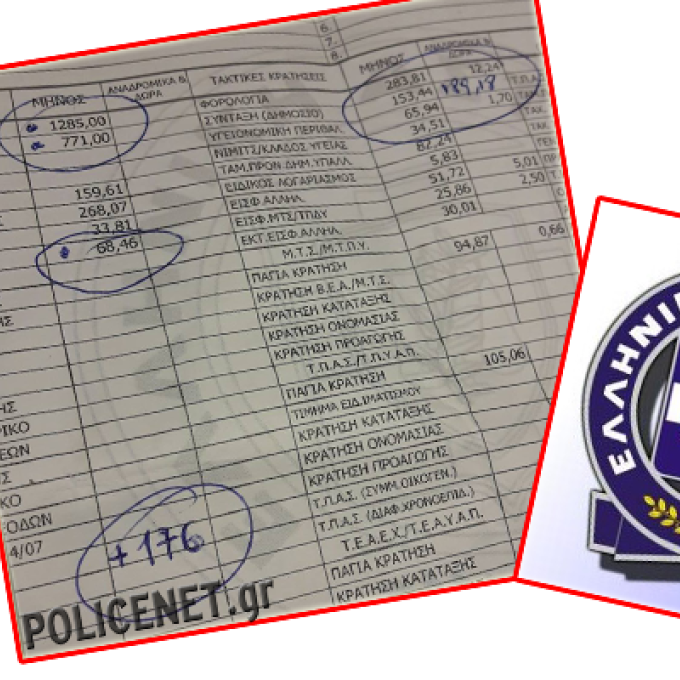 6.
7.
8.
ΜΗΝΟΣ ΑΝΑΔΡΟΜΙΚΑ & ΔΩΡΑ ΤΑΚΤΙΚΕΣ ΚΡΑΤΗΣΕΙΣ ΜΗΝΟΣ ΑΝΑΔΡΟΜΙΚΑ & ΔΩΡΑ
1285,00 ΦΟΡΟΛΟΓΙΑ 283,81 12,24
771,00 ΣΥΝΤΑΞΗ (ΔΗΜΟΣΙΟ) 153,44 Τ.Π.Α.Σ
ΥΓΕΙΟΝΟΜΙΚΗ ΠΕΡΙΘΑΛ. 65,94 1,70
ΝΙΜΙΤΣ/ΚΛΑΔΟΣ ΥΓΕΙΑΣ 34,51 ΤΑΚ.
159,61 ΤΑΜ.ΠΡΟΝ ΔΗΜ.ΥΠΑΛΛ. 82,24 ΤΑΚ
268,07 ΕΙΔΙΚΟΣ ΛΟΓΑΡΙΑΣΜΟΣ 5,83
33,81 ΕΙΣΦ.ΑΛΛΗΛ. 51,72 5,01
68,46 ΕΙΣΦ.ΜΤΣ/ΤΠΔΥ 25,86 2,50
ΕΚΤ.ΕΙΣΦ.ΑΛΛΗΛ. 30,01
Μ.Τ.Σ./Μ.Τ.Π.Υ. 94,87 0,66
ΠΑΓΙΑ ΚΡΑΤΗΣΗ
ΚΡΑΤΗΣΗ Β.Ε.Α./Μ.Τ.Σ.
ΚΡΑΤΗΣΗ ΚΑΤΑΤΑΞΗΣ
ΚΡΑΤΗΣΗ ΟΝΟΜΑΣΙΑΣ
ΚΡΑΤΗΣΗ ΠΡΟΑΓΩΓΗΣ
Τ.Π.Α.Σ./Τ.Π.Υ.Α.Π. 105,06
ΠΑΓΙΑ ΚΡΑΤΗΣΗ
ΤΙΜΗΜΑ ΕΙΔ.ΙΜΑΤΙΣΜΟΥ
ΚΡΑΤΗΣΗ ΚΑΤΑΤΑΞΗΣ
ΚΡΑΤΗΣΗ ΟΝΟΜΑΣΙΑΣ
ΚΡΑΤΗΣΗ ΠΡΟΑΓΩΓΗΣ
ΟΔΩΝ Τ.Π.Α.Σ. (ΣΥΜΜ.ΟΙΚΟΓΕΝ.)
4/07 Τ.Π.Α.Σ. (ΔΙΑΦ.ΧΡΟΝΟΕΠΙΔ.)
+176 Τ.Ε.Α.Ε.Χ./Τ.Ε.Α.Υ.Α.Π.
ΠΑΓΙΑ ΚΡΑΤΗΣΗ
ΚΡΑΤΗΣΗ ΚΑΤΑΤΑΞΗΣ
POLICENET.gr
ΕΛΛΗΝΙ